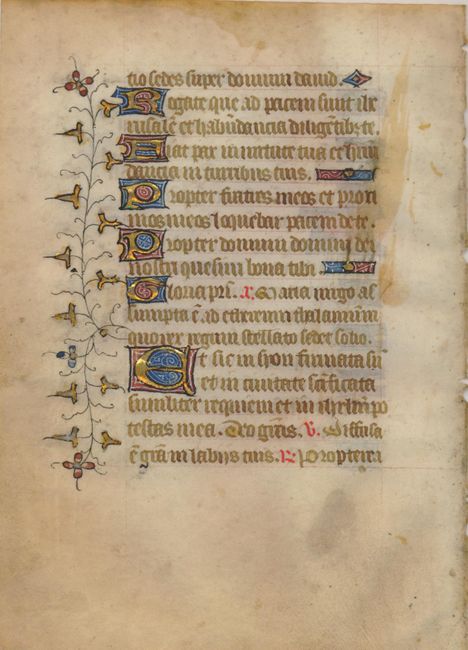 tio sedes super domum dauid.
Rogate que ad pacem sunt ihe
rusalē et habūdancia diligētibꝫ te.
Fiat pax in uirtute tua et habū
dancia in turribus tuis.
Propter fratres meos et proxi
mos meos loquebar pacem de te.
Propter domum domini dei
nostri quesiui bona tibi.
Gloria pr̄i. a. Maria uirgo as
sumpta ē ad ethereum thalamum
quo rex regum stellato sedet solio.
Et sic in syon firmata sū
et in ciuitate sācficata
similiter requieui et in ihrlm̄ po
testas mea. Deo grās. V. Diffusa
ē grā in labijs tuis. R Propterea